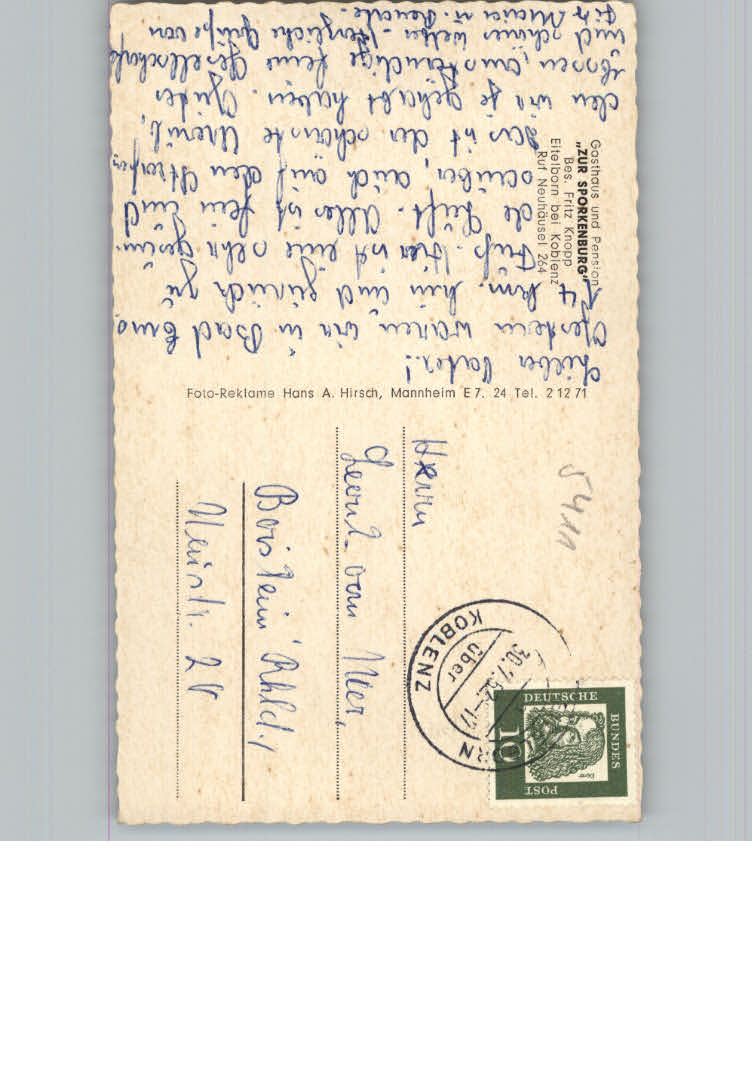 Gasthaus und Pension
„ZUR SPORKENBURG"
Bes. Fritz Knopp
Eitelborn bei Koblenz
Ruf Neuhäusel 264
Lieber Vater!
Gestern waren wir in Bad Ems,
14 km. hin und zurück zu
Fuß. Hier ist eine sehr gesun-
de Luft. Alles ist fein und
sauber, auch auf den Straßen
das ist der schönste Urlaub,
den wir je gehabt haben. Gutes
Essen, anständige feine Gesellschaft
und schönes Wetter. Herzliche Grüße von
Maria u.
Foto-Reklame Hans A. Hirsch, Mannheim E 7. 24 Tel. 2 12 71
5411
Herrn
van
Rhld.,
Neustr. 28
über
KOBLENZ
30.7.62-17
DEUTSCHE
BUNDES
POST
10
Dürer